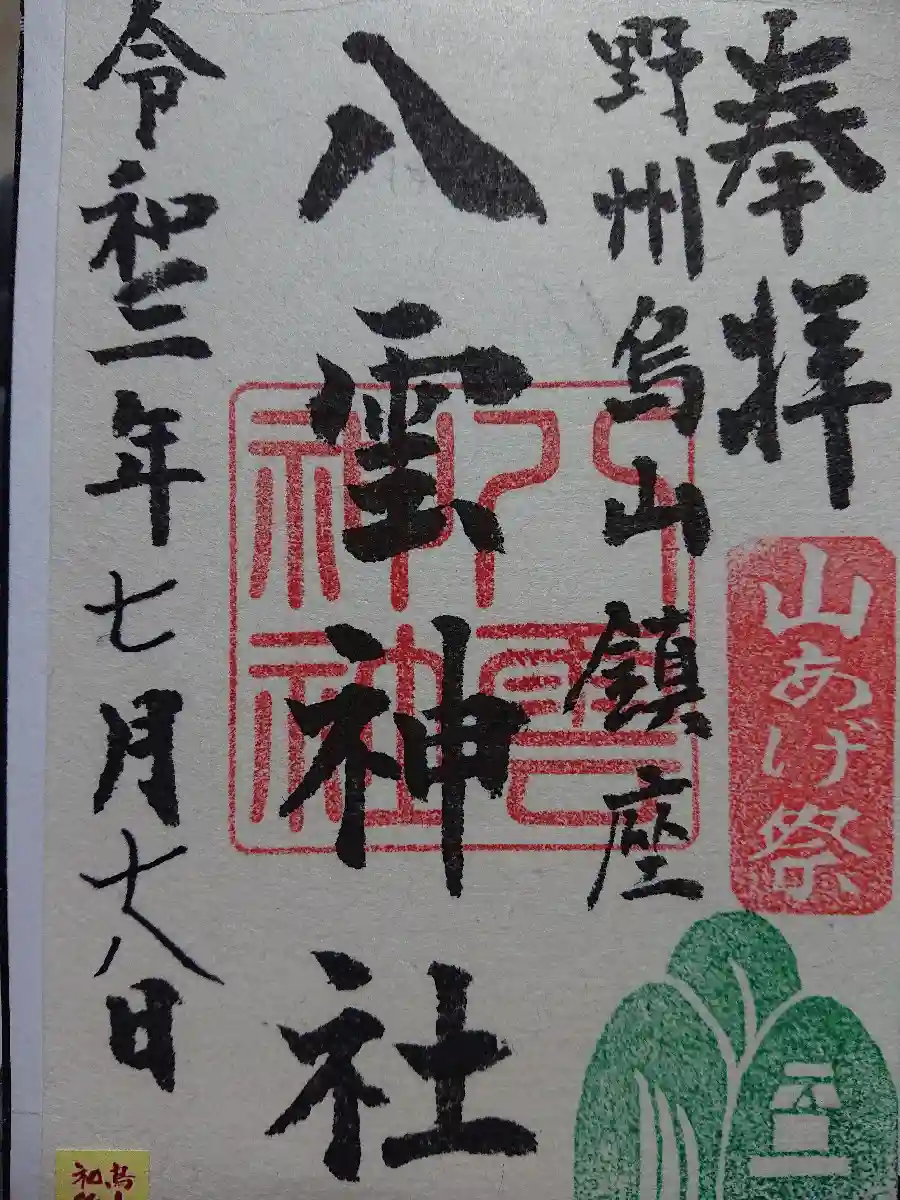 奉拝
山あげ祭
野州烏山鎮座
八雲神社
八雲神社
令和三年七月十八日
烏
和